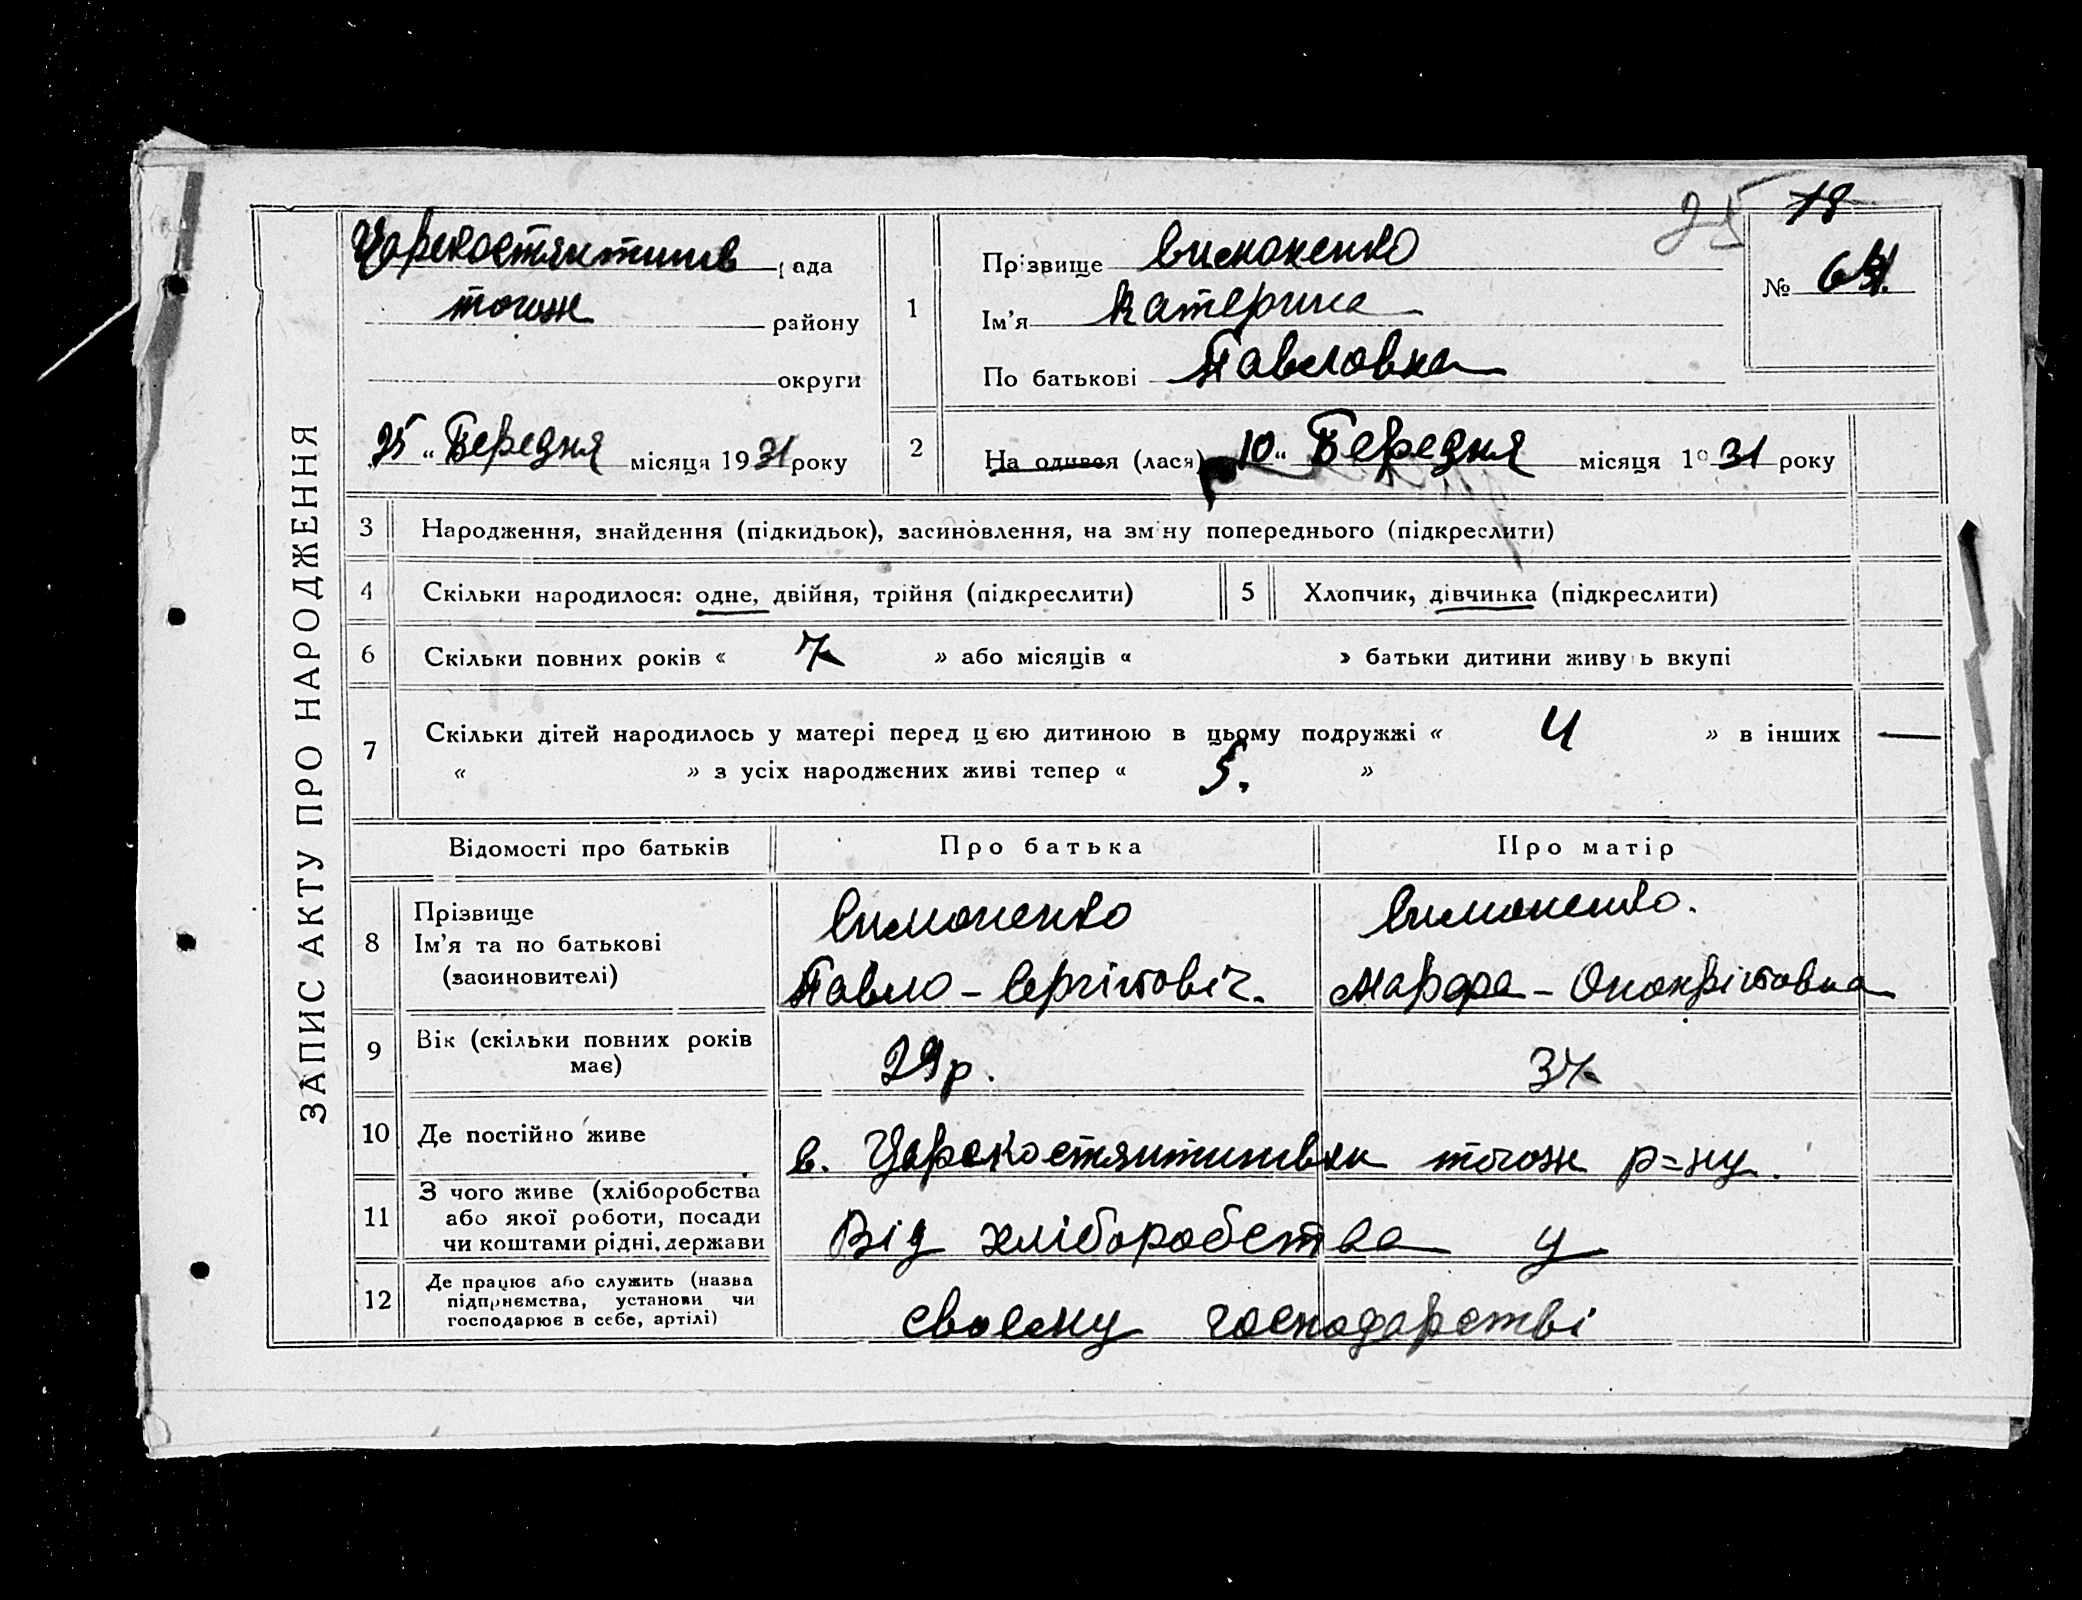 25 18
ЗАПИС АКТУ ПРО НАРОДЖЕННЯ
Царекостянтинів рада
тогож району
округи
25 „ Березня місяця 1931 року
1
Прізвище Симоненко
Ім'я Катерина
По батькові Павловна
№ 64.
2 На одився (лася) 10 „ Березня місяця 1931 року
3 Народження, знайдення (підкидьок), засиновлення, на зміну попереднього (підкреслити)
4 Скільки народилося: одне, двійня, трійня (підкреслити)
5 Хлопчик, дівчинка (підкреслити)
6 Скільки повних років « 7 » або місяців « » батьки дитини живуть вкупі
7 Скільки дітей народилось у матері перед цією дитиною в цьому подружжі « 4 » в інших —
« » з усіх народжених живі тепер « 5. »
Відомості про батьків Про батька Про матір
8 Прізвище
Ім'я та по батькові
(засиновителі)
Симоненко
Павло - Сергійовіч.
Симоненко.
9 Вік (скільки повних років
має)
29 р.
10 Де постійно живе
с. Царекостянтинівки тогож р=ну.
11 З чого живе (хліборобства
або якої роботи, посади
чи коштами рідні, держави
Від хліборобства у
12 Де працює або служить (назва
підприємства, установи чи
господарює в себе, артілі)
своєму господарстві